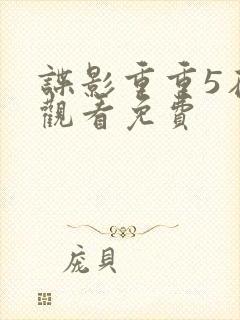 諜影重重5在
觀看免費
庞貝